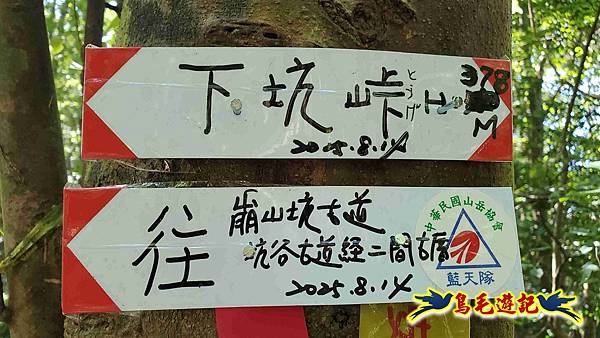 下坑峠 H 378 M
とうげ
2025.8.14
往 崩山坑古道
坑谷古道經二間古厝
2025.8.14
中華民國山岳協會
藍天隊
鳥毛遊記